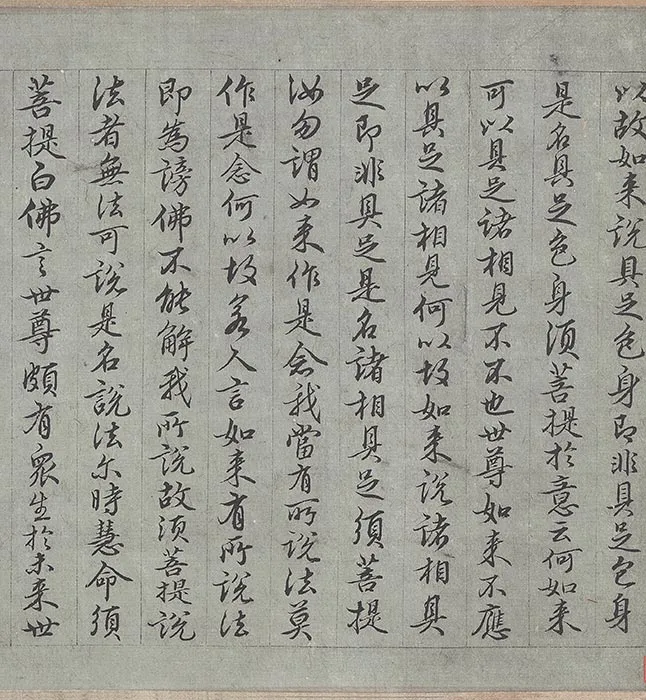 以故如来說具足色身即非具足色身
是名具足色身須菩提於意云何如来
可以具足諸相見不不也世尊如来不應
以具足諸相見何以故如来說諸相具
足即非具足是名諸相具足須菩提
汝勿謂如来作是念我當有所說法莫
作是念何以故若人言如来有所說法
即為謗佛不能解我所說故須菩提說
法者無法可說是名說法尒時慧命須
菩提白佛言世尊頗有眾生於未来世